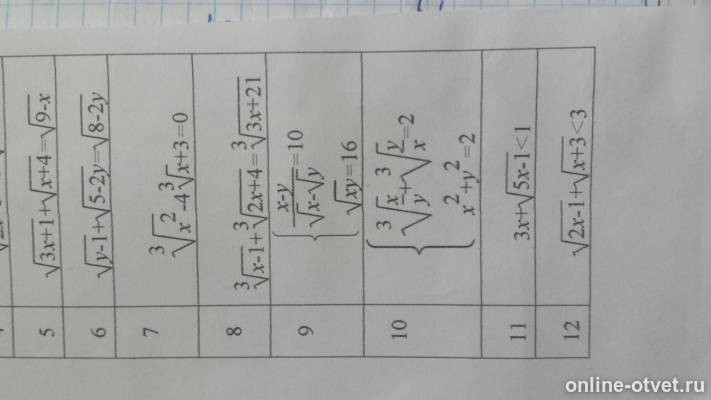 5 √3x+1+√x+4=√9-x
6 √y-1+√5-2y=√8-2y
7 ∛x²-4∛x+3=0
8 ∛x-1+∛2x+4=∛3x+21
9 { x-y/√x-√y=10
√xy=16
10 { ∛x/y+∛y/x=2
x²+y²=2
11 3x+√5x-1<1
12 √2x-1+√x+3<3
online-otvet.ru